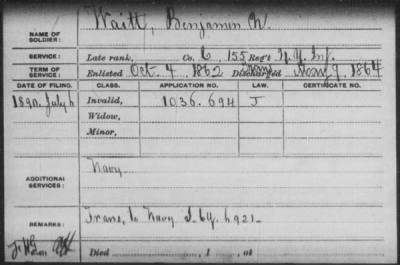 NAME OF SOLDIER: Waitt, Benjamin W.
SERVICE: Late rank, Co. C, 155 Reg't N.Y. Inf.
TERM OF SERVICE: Enlisted Oct. 4, 1862 Discharged 9, 1864
DATE OF FILING. CLASS. APPLICATION NO. LAW. CERTIFICATE NO.
1890. July Invalid, 1036.694 J
Widow,
Minor,
ADDITIONAL SERVICES: Navy
REMARKS: Trans. to Navy
Died , 1 , at